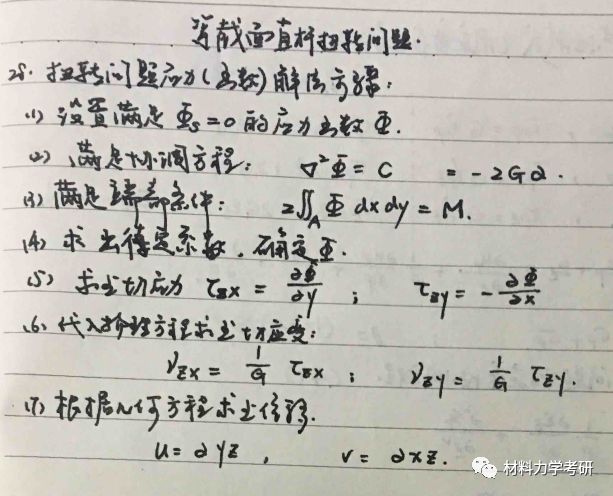 等截面直杆扭转问题.
28. 扭转问题应力(函数)解法步骤:
(1) 设置满足 Φs=0 的应力函数 Φ.
(2) 满足协调方程: ∇²Φ = C = -2Gα.
(3) 满足端部条件: 2∬_A Φ dxdy = M.
(4) 求出待定系数, 确定Φ.
(5) 求出切应力 τzx = ∂Φ/∂y ; τzy = -∂Φ/∂x
(6) 代入物理方程求出切应变:
γzx = 1/G τzx ; γzy = 1/G τzy.
(7) 根据几何方程求出位移.
u = αyz , v = αxz.
材料力学考研